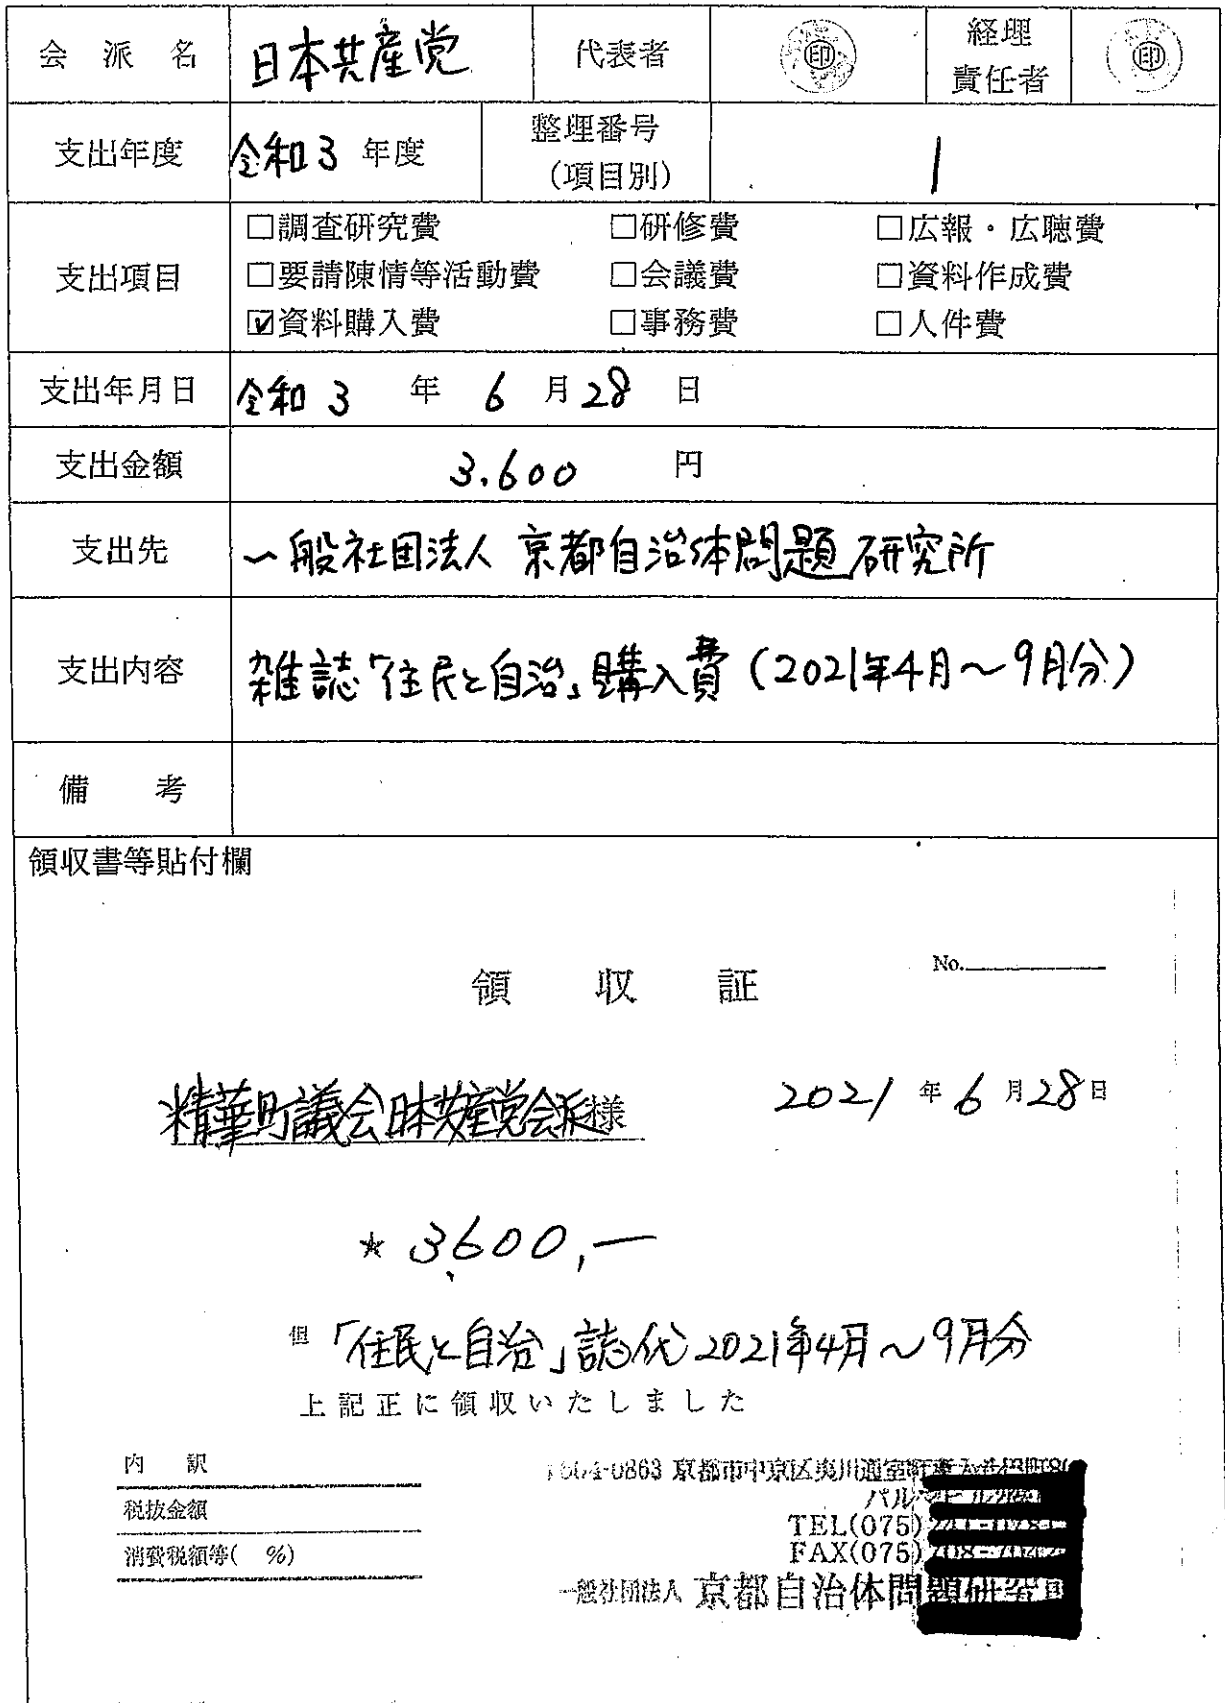 会派名 日本共産党 代表者 印 経理責任者 印
支出年度 令和3年度 整理番号(項目別) 1
支出項目
□調査研究費 □研修費 □広報・広聴費
□要請陳情等活動費 □会議費 □資料作成費
☑資料購入費 □事務費 □人件費
支出年月日 令和3年6月28日
支出金額 3.600円
支出先 一般社団法人 京都自治体問題研究所
支出内容 雑誌「住民と自治」購入費(2021年4月～9月分)
備考
領収書等貼付欄
No.
領収証
精華町議会日本共産党会派様 2021年6月28日
★3,600,―
但「住民と自治」誌代2021年4月～9月分
上記正に領収いたしました
内訳
税抜金額
消費税額等( %)
〒604-0863 京都市中京区夷川通室町東入
TEL(075)
FAX(075)
一般社団法人 京都自治体問題研究所